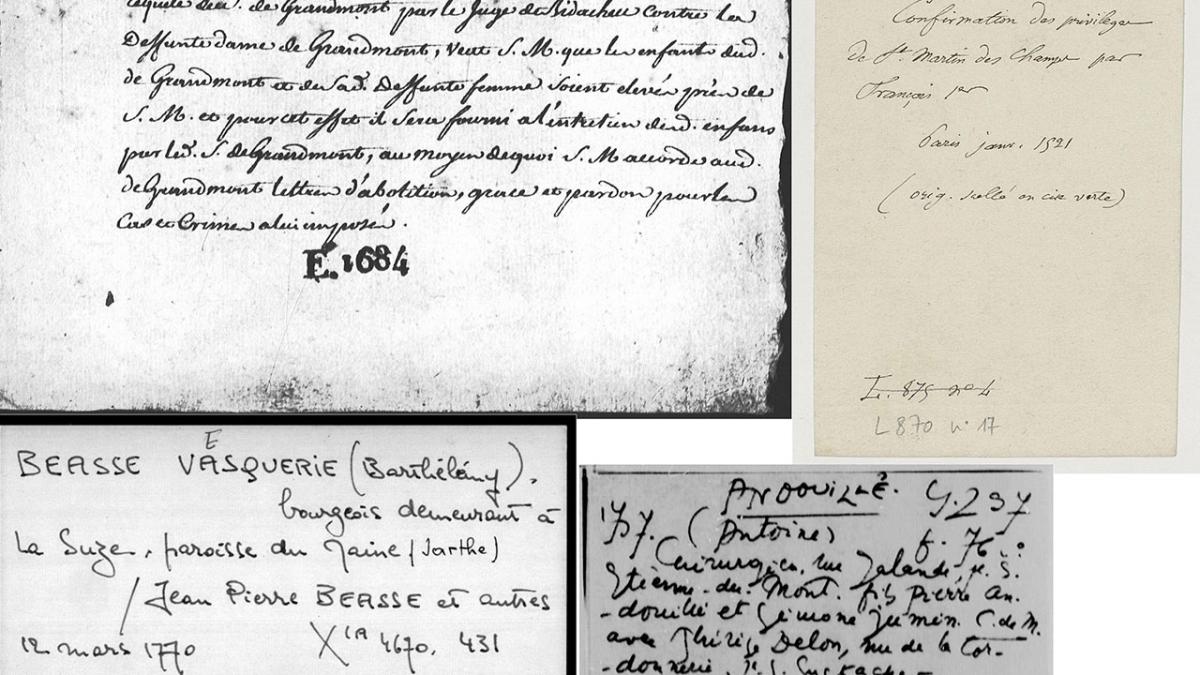 requete dud. de Grandmont par le Juge de Bidache contre la
Deffunte dame de Grandmont, veut S. M. que les enfants dud.
de Grandmont et de sad. Deffunte femme soient elevés prés de
S. M. et pour cet effet il sera fourni a l'entretien desd. enfans
par led. S. de Grandmont, au moyen de quoi S. M accorde aud.
de Grandmont lettres d'abolition, grace et pardon pour les
Cas et Crimes a lui imposés.
E. 1684
Confirmation des privileges
de St. Martin des Champs par
François 1er
Paris janv. 1521
(orig. scellé en cire verte)
L. 875 no 4
L 870 n° 17
BEASSE VASQUERIE (Barthélémy),
E
bourgeois demeurant à
La Suze, paroisse du Maine (Sarthe)
/ Jean Pierre BEASSE et autres
12 mars 1770 X1A 4670, 431
ANDOUILLÉ. Y. 237
(Antoine) f. 76
Chirurgien, rue Galande, p. S.
Etienne-du-Mont, fils Pierre An-
-douillé et Simone Jumin. C. de M.
avec Thérèse Delon, rue de la Cor-
-donnerie, p. S. Eustache -